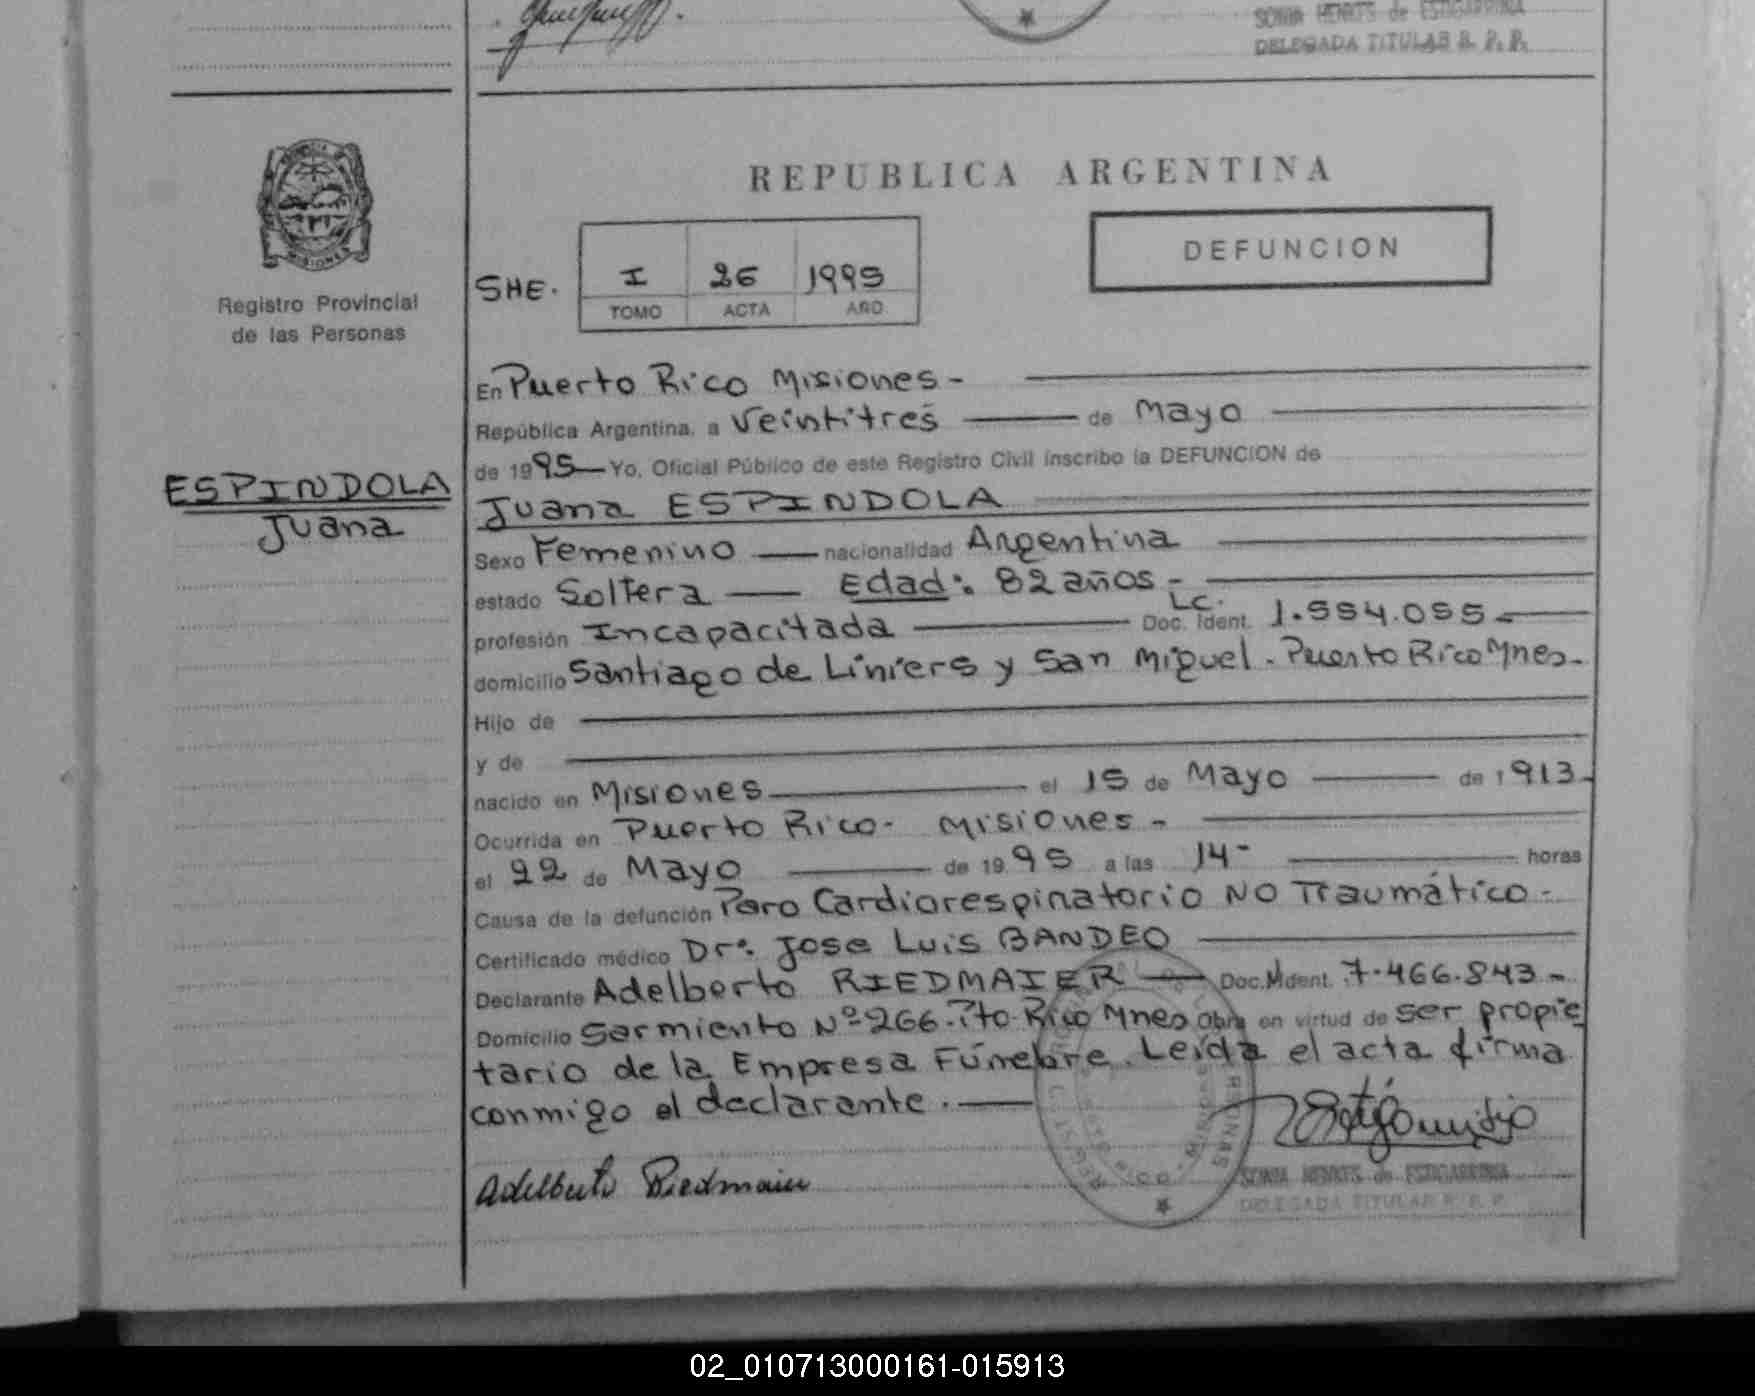 SONIA HENKIS de ESTIGARRIBIA
DELEGADA TITULAR R. P. P.
REPUBLICA ARGENTINA
DEFUNCION
MISIONES
Registro Provincial
de las Personas
SHE. I 26 1995
TOMO ACTA AÑO
En Puerto Rico Misiones -
República Argentina, a Veintitres de Mayo
de 1995 Yo, Oficial Público de este Registro Civil inscribo la DEFUNCION de
ESPINDOLA
Juana
Juana ESPINDOLA
Sexo Femenino nacionalidad Argentina
estado Soltera Edad: 82 años -
profesión Incapacitada LC. Doc. Ident. 1.554.055
domicilio Santiago de Liniers y San Miguel - Puerto Rico Mnes -
Hijo de
y de
nacido en Misiones el 15 de Mayo de 1913
Ocurrida en Puerto Rico - Misiones -
el 22 de Mayo de 1995 a las 14 - horas
Causa de la defunción Paro Cardiorespiratorio NO Traumático -
Certificado médico Dr: Jose Luis BANDEO
Declarante Adelberto RIEDMAIER Doc. M Ident. 7.466.843 -
Domicilio Sarmiento Nº 266 - Pto Rico Mnes Obra en virtud de ser propie
tario de la Empresa Fúnebre. Leída el acta firma
conmigo el declarante.
Adelberto Riedmaier
SONIA HENKIS de ESTIGARRIBIA
DELEGADA TITULAR R. P. P.
02_010713000161-015913